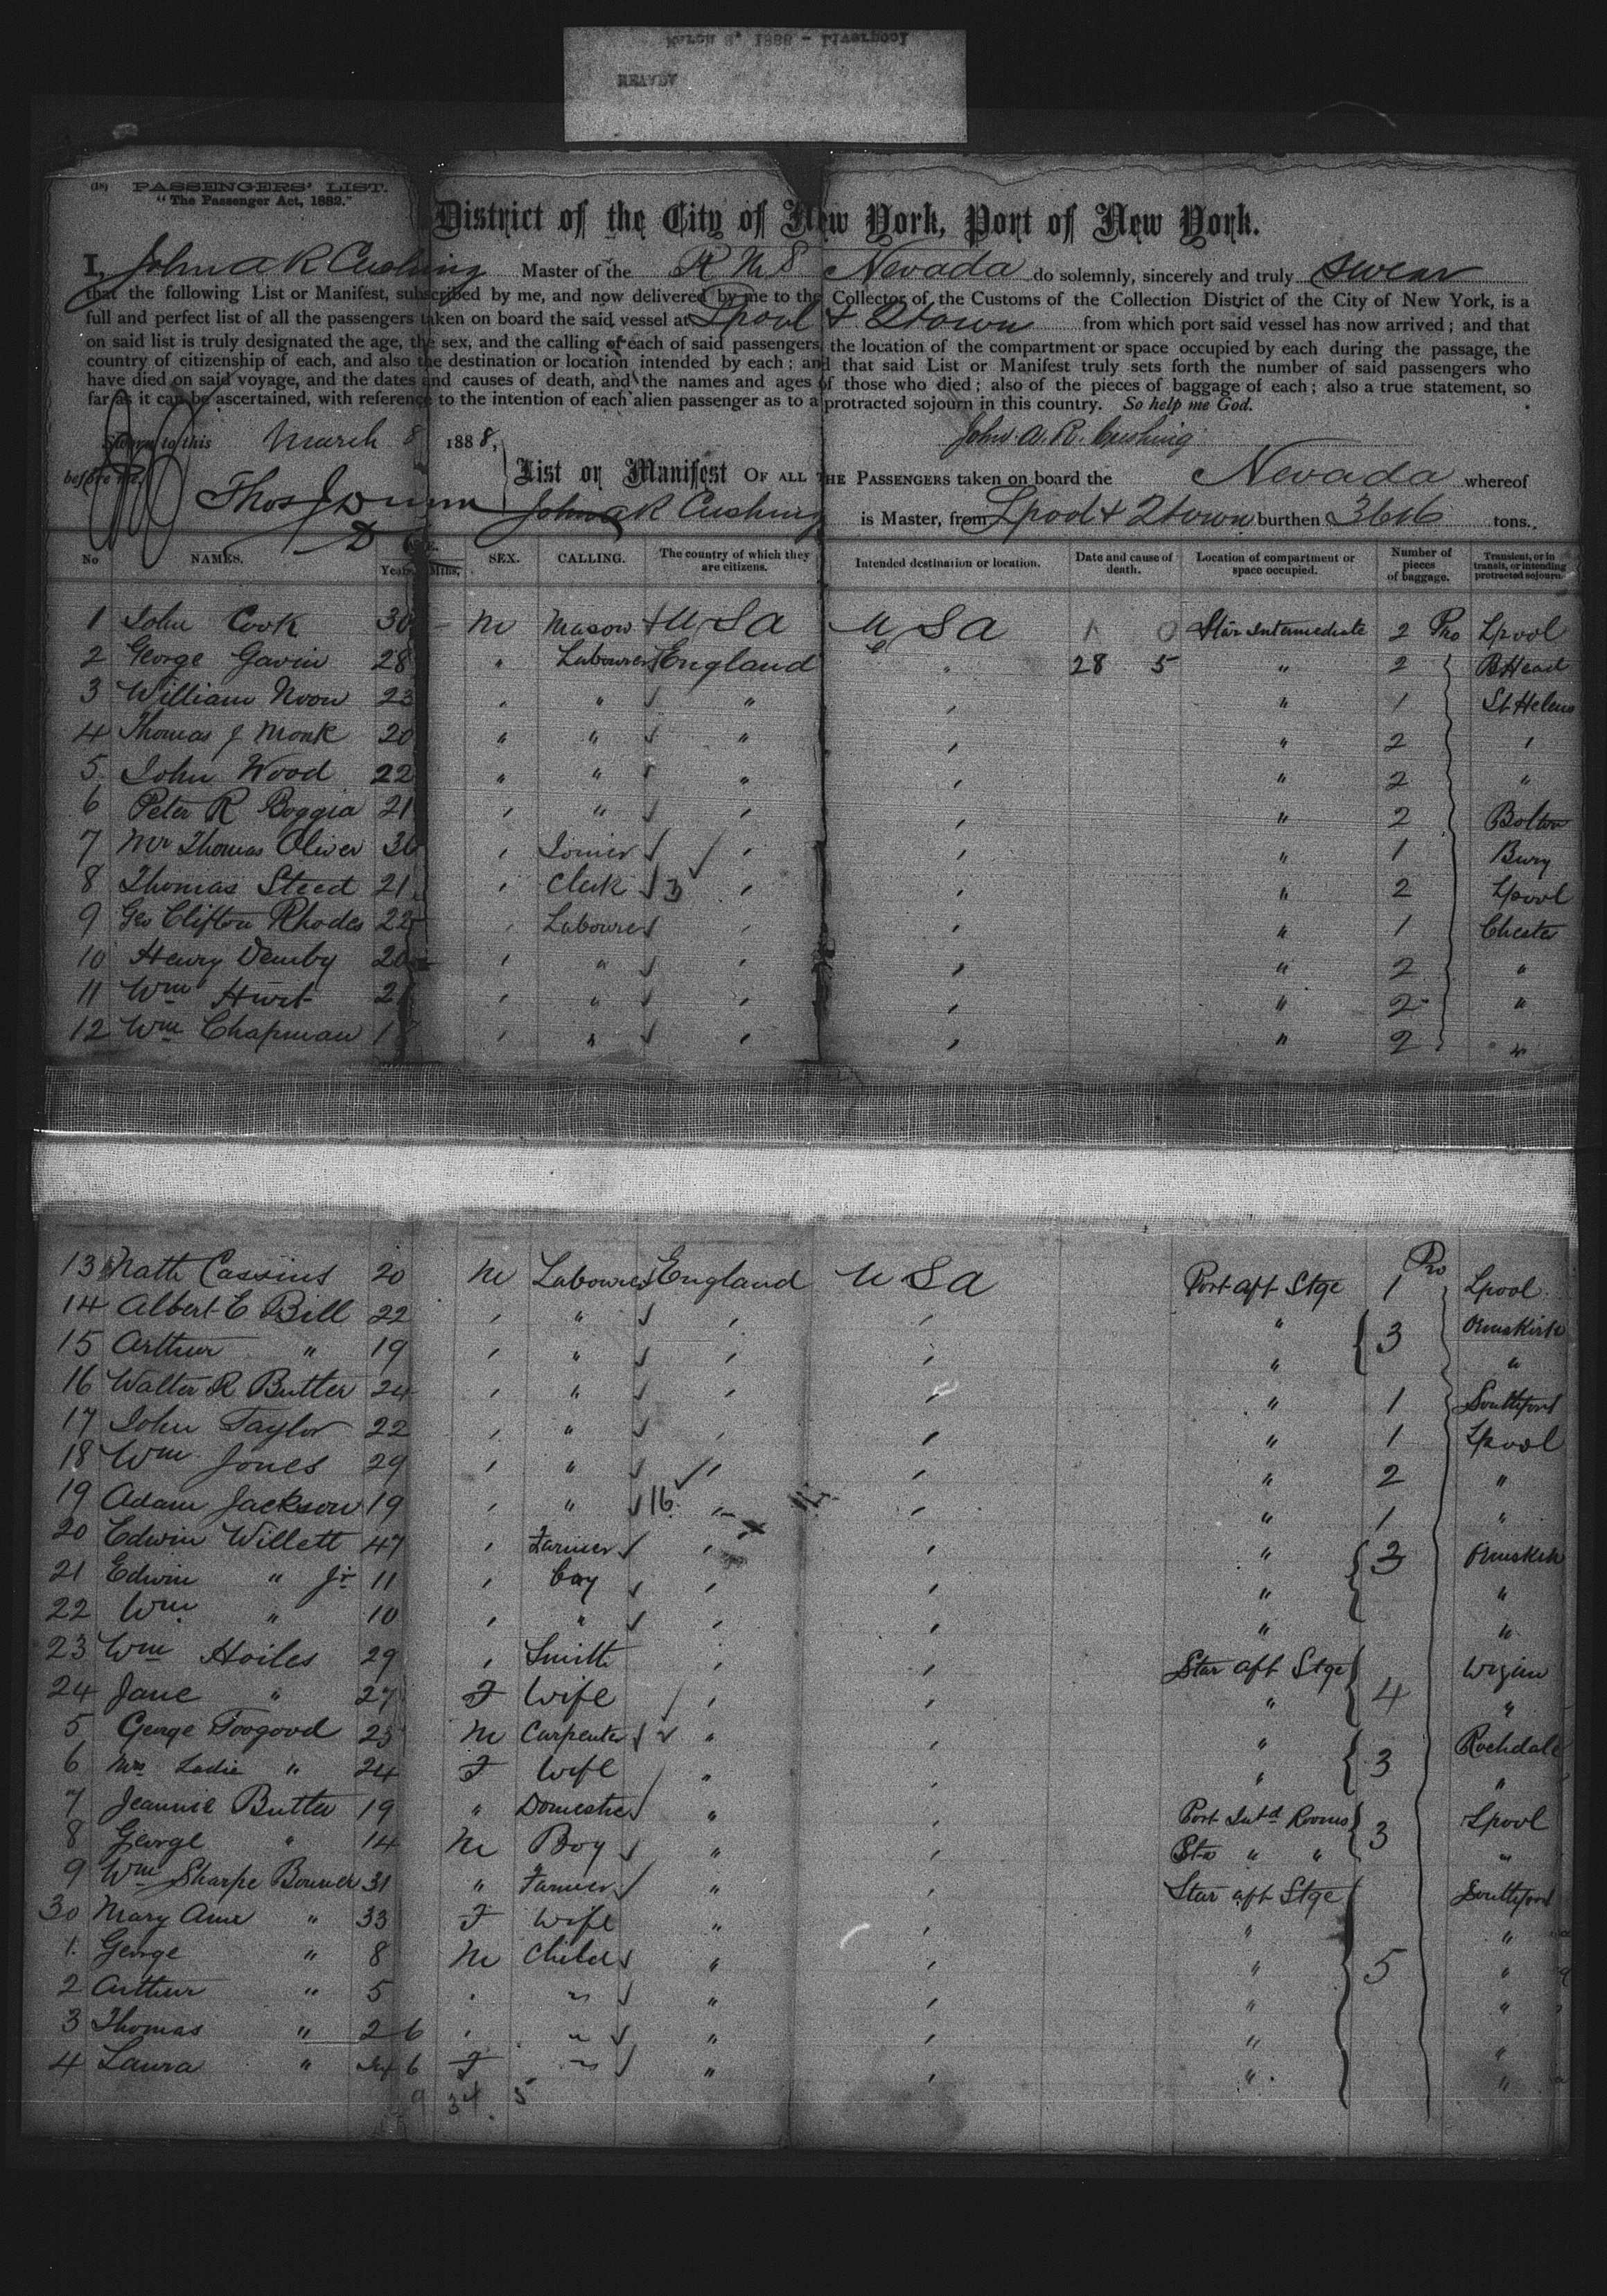 March 8, 1888 - Liverpool
NEVADA
(18) PASSENGERS' LIST.
"The Passenger Act, 1882."
District of the City of New York, Port of New York.
I, John A R Cushing Master of the R M S Nevada do solemnly, sincerely and truly swear
that the following List or Manifest, subscribed by me, and now delivered by me to the Collector of the Customs of the Collection District of the City of New York, is a
full and perfect list of all the passengers taken on board the said vessel at Lpool & Qtown from which port said vessel has now arrived; and that
on said list is truly designated the age, the sex, and the calling of each of said passengers, the location of the compartment or space occupied by each during the passage, the
country of citizenship of each, and also the destination or location intended by each; and that said List or Manifest truly sets forth the number of said passengers who
have died on said voyage, and the dates and causes of death, and the names and ages of those who died; also of the pieces of baggage of each; also a true statement, so
far as it can be ascertained, with reference to the intention of each alien passenger as to a protracted sojourn in this country. So help me God.
Sworn to this March 8 1888, John A. R. Cushing
before me, Thos J Dunn
List or Manifest OF ALL THE PASSENGERS taken on board the Nevada whereof
John A R Cushing is Master, from Lpool & Qtown burthen 3616 tons.
No NAMES. AGE. Years. Mths. SEX. CALLING. The country of which they are citizens. Intended destination or location. Date and cause of death. Location of compartment or space occupied. Number of pieces of baggage. Transient, or in transit, or intending protracted sojourn.
1 John Cook 30 - M Mason USA USA 1 0 Star Intermediate 2 Pro Lpool
2 George Gavin 28 " Labourer England " 28 5 " 2 BHead
3 William Noon 23 " " " " " 1 St Helens
4 Thomas J Monk 20 " " " " " 2 "
5 John Wood 22 " " " " " 2 "
6 Peter R Boggia 21 " " " " " 2 Bolton
7 Mr Thomas Oliver 36 " Joiner " " " 1 Bury
8 Thomas Steed 21 " Clerk 3 " " " 2 Lpool
9 Geo Clifton Rhodes 22 " Labourer " " " 1 Chester
10 Henry Demby 20 " " " " " 2 "
11 Wm Hurst 21 " " " " " 2 "
12 Wm Chapman " " " " " 2 "
13 Nath Cassius 20 M Labourer England USA Port aft Stge 1 Pro Lpool
14 Albert E Bill 22 " " " " " 3 Ormskirk
15 Arthur " 19 " " " " " "
16 Walter R Butter 24 " " " " " 1 Southport
17 John Taylor 22 " " " " 1 Lpool
18 Wm Jones 29 " " " " " 2 "
19 Adam Jackson 19 " " 16 " " " 1 "
20 Edwin Willett 47 " Farmer " " " 3 Ormskirk
21 Edwin " Jr 11 " Boy " " " "
22 Wm " 10 " " " " " "
23 Wm Hoiles 29 " Smith " " Star aft Stge 4 Wigan
24 Jane " 27 F Wife " " " "
5 George Toogood 23 M Carpenter " " " 3 Rochdale
6 Mrs Sadie " 24 F Wife " " " "
7 Jeannie Butter 19 " Domestic " " Port Intd Rooms 3 Lpool
8 George " 14 M Boy " " Sta " " "
9 Wm Sharpe Bonner 31 " Farmer " " Star aft Stge 5 Southport
30 Mary Ann " 33 F Wife " " " "
1 George " 8 M Child " " " "
2 Arthur " 5 " " " " " "
3 Thomas " 2 6 " " " " " "
4 Laura " 6 F " " " " "
9 34 5